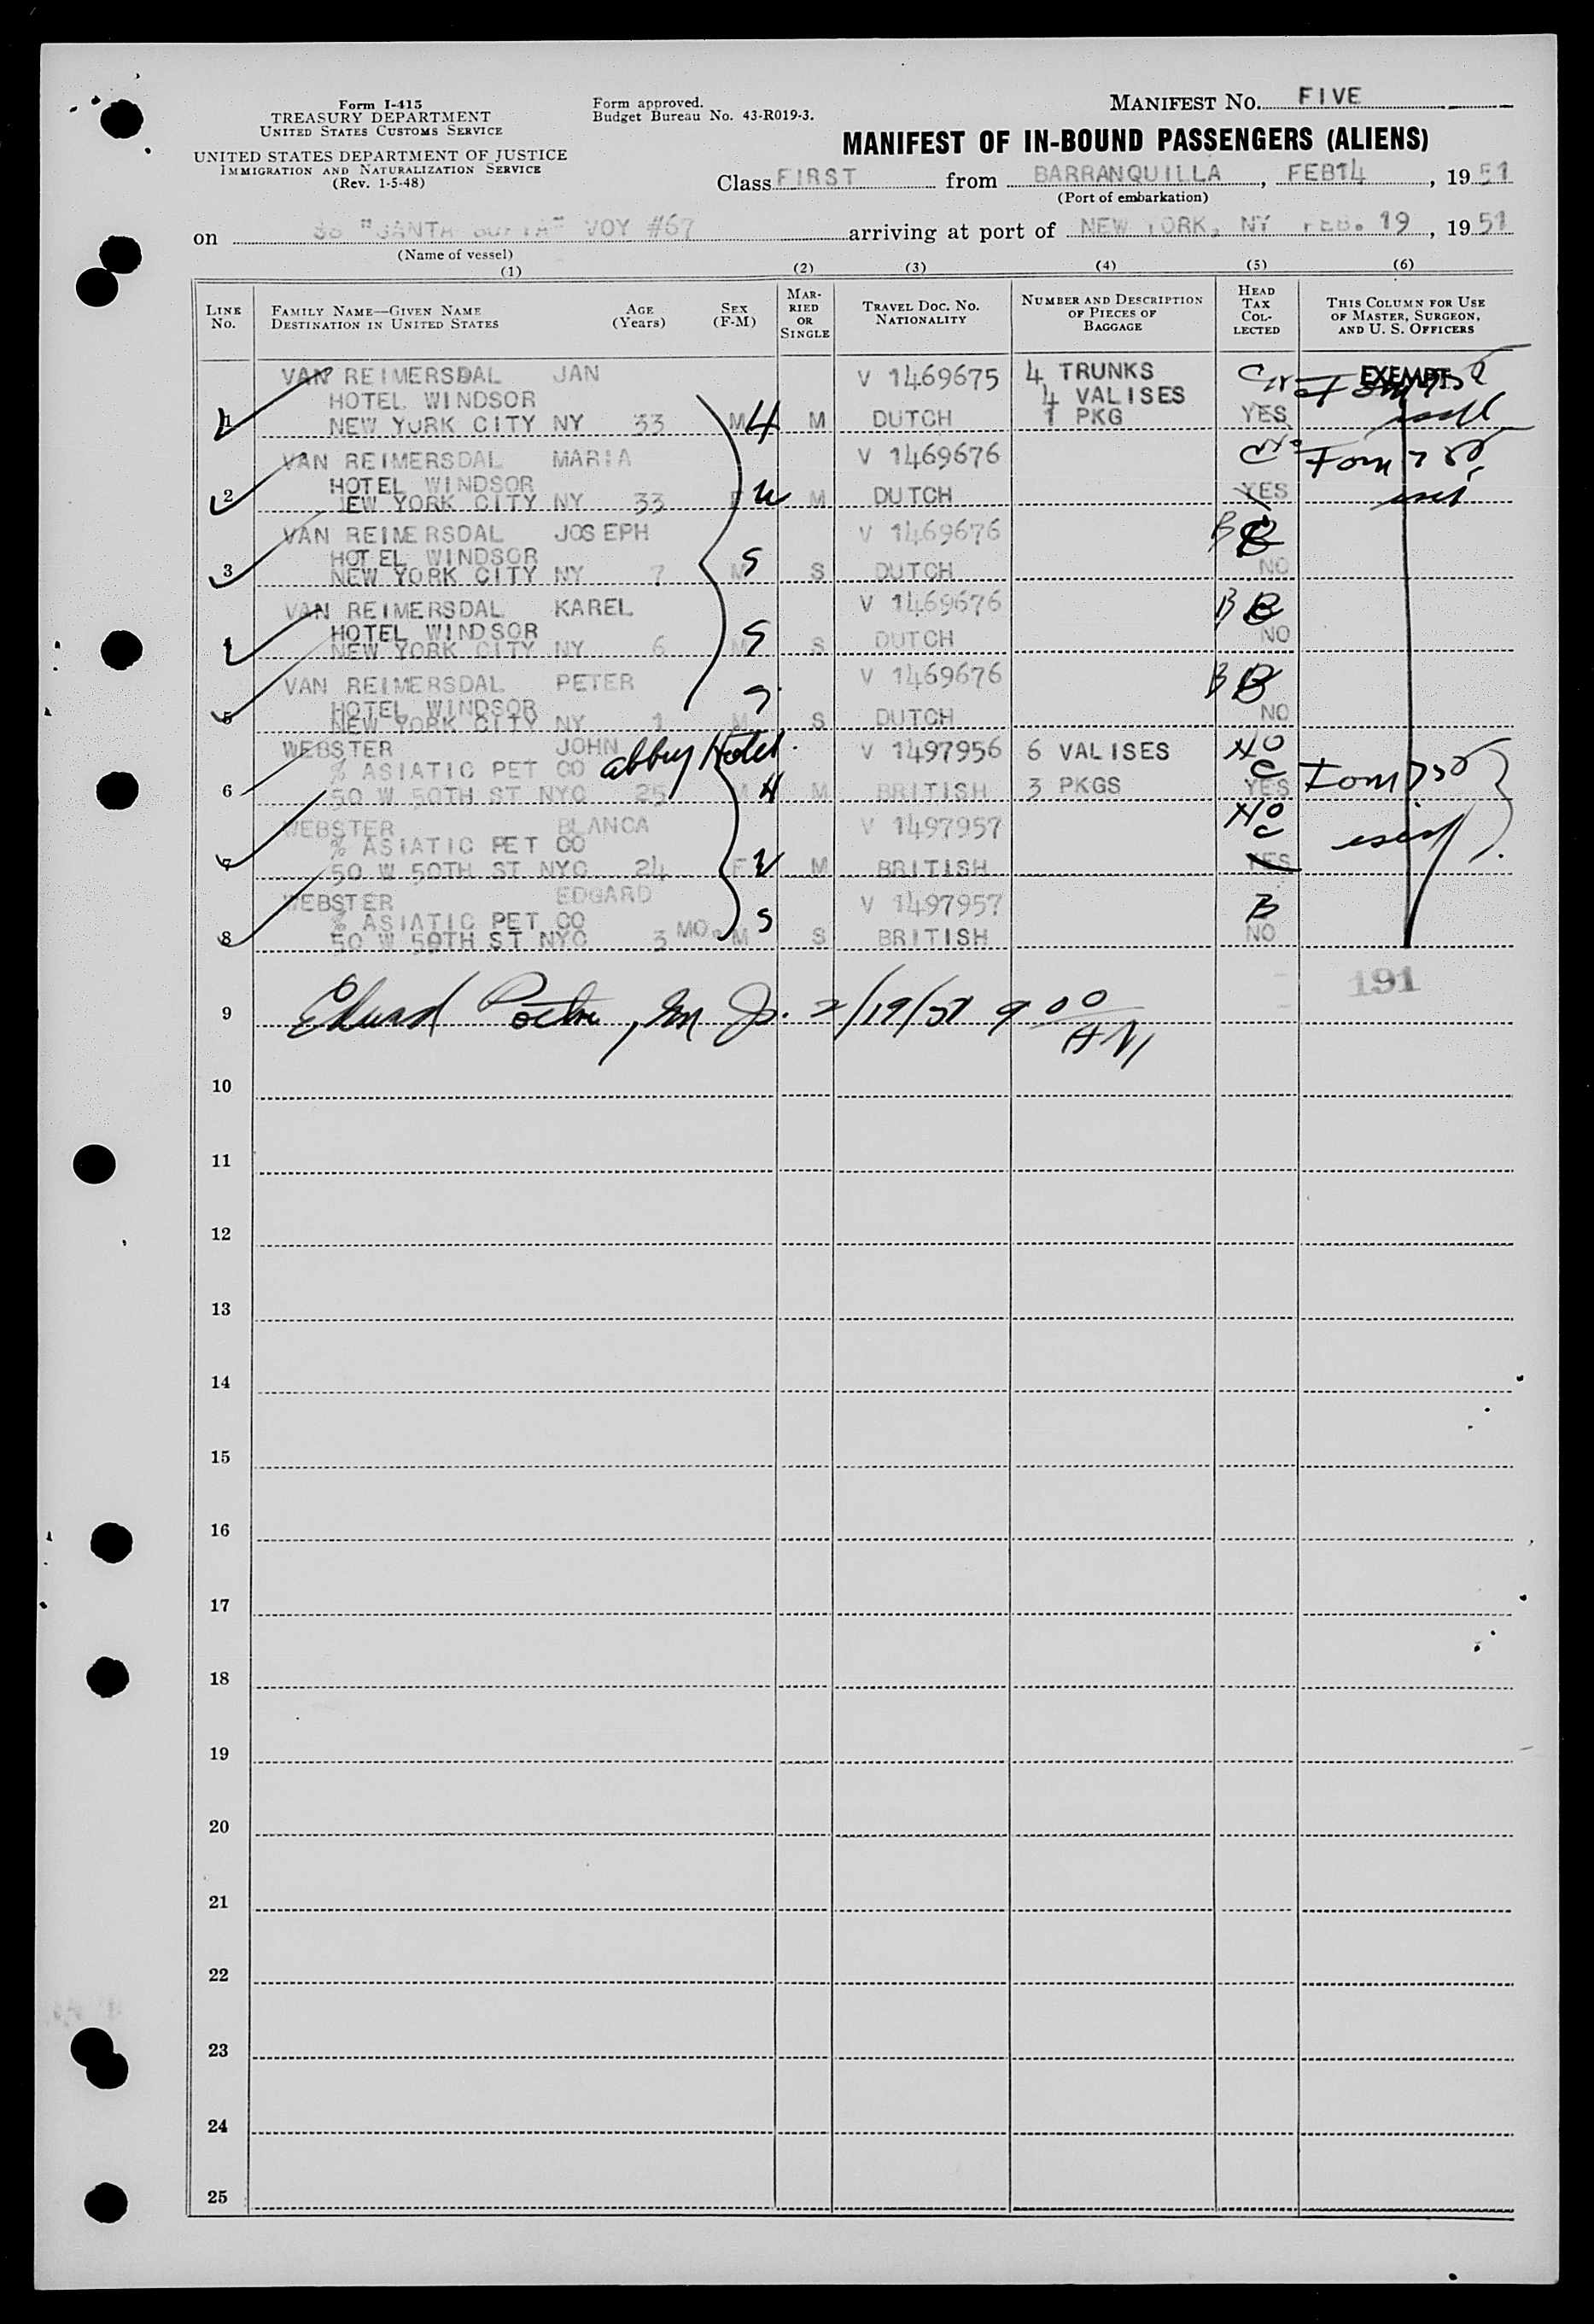 Form I-415
TREASURY DEPARTMENT
UNITED STATES CUSTOMS SERVICE
UNITED STATES DEPARTMENT OF JUSTICE
IMMIGRATION AND NATURALIZATION SERVICE
(Rev. 1-5-48)
Form approved.
Budget Bureau No. 43-R019-3.
MANIFEST NO. FIVE
MANIFEST OF IN-BOUND PASSENGERS (ALIENS)
Class FIRST from BARRANQUILLA, FEB14, 19 51
(Port of embarkation)
on SS "SANTA SOFIA" VOY #67 arriving at port of NEW YORK, NY FEB. 19, 19 51
(Name of vessel)
(1) (2) (3) (4) (5) (6)
LINE No. FAMILY NAME—GIVEN NAME DESTINATION IN UNITED STATES AGE (Years) SEX (F-M) MARRIED OR SINGLE TRAVEL DOC. NO. NATIONALITY NUMBER AND DESCRIPTION OF PIECES OF BAGGAGE HEAD TAX COLLECTED THIS COLUMN FOR USE OF MASTER, SURGEON, AND U. S. OFFICERS
VAN REIMERSDAL JAN V 1469675 4 TRUNKS EXEMPT
HOTEL WINDSOR 4 VALISES
1 NEW YORK CITY NY 33 M M DUTCH 1 PKG YES
VAN REIMERSDAL MARIA V 1469676
HOTEL WINDSOR
2 NEW YORK CITY NY 33 F M DUTCH YES
VAN REIMERSDAL JOSEPH V 1469676 B
HOTEL WINDSOR
3 NEW YORK CITY NY 7 M S S DUTCH NO
VAN REIMERSDAL KAREL V 1469676 B B
HOTEL WINDSOR
4 NEW YORK CITY NY 6 M S S DUTCH NO
VAN REIMERSDAL PETER V 1469676 B B
HOTEL WINDSOR
5 NEW YORK CITY NY 1 M S DUTCH NO
WEBSTER JOHN abbey Hotel V 1497956 6 VALISES
% ASIATIC PET CO
6 50 W 50TH ST NYC 25 M M BRITISH 3 PKGS YES
WEBSTER BLANCA V 1497957
% ASIATIC PET CO
7 50 W 50TH ST NYC 24 F M BRITISH YES
WEBSTER EDGARD V 1497957 B
% ASIATIC PET CO
8 50 W 50TH ST NYC 3 MO. M S S BRITISH NO
191
9 2/19/51 9 00 AM
10
11
12
13
14
15
16
17
18
19
20
21
22
23
24
25